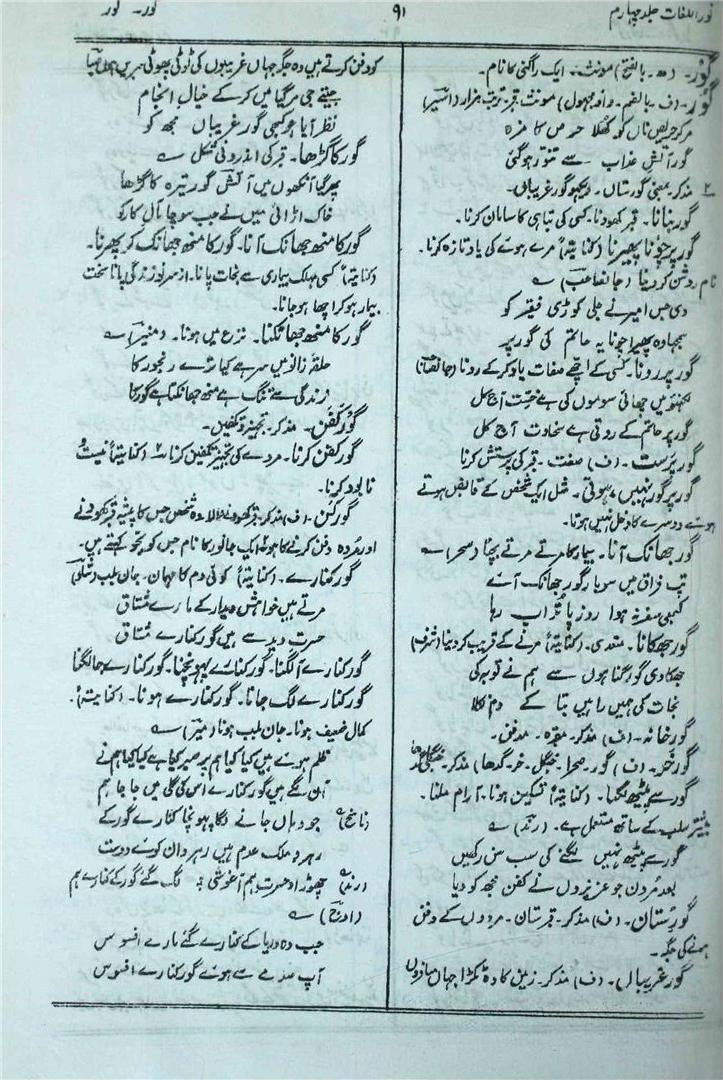 نوراللغات جلد چہارم
۹۱
گور۔ گور
گَوْر۔ (ھ۔ بالفتح) مونث۔ ایک راگنی کا نام۔
گُور۔ (ف۔ بالضم۔ واو مجہول) مونث۔ قبر۔ تربت۔ مزار (اسیر)
مر کر حریص ناں کو کھلا حرص کا مزہ
گور آتشِ عذاب سے تنور ہوگئی
۲ مذکر۔ بمعنی گورستاں۔ دیکھو گور غریباں۔
گور بنانا۔ قبر کھودنا۔ کسی کی تباہی کا سامان کرنا۔
گور پر چونا پھیرنا (کنایۃً) مرے ہوئے کی یاد تازہ کرنا۔
نام روشن کردینا (جانصاحب) ؎
دی جس امیر نے جلی کوڑی فقیر کو
سمجھا وہ پھیرا چونا یہ حاتم کی گور پر
گور پر رونا۔ کسی کے اچھے صفات یاد کرکے رونا (جانصاحب)
لکھنؤ میں چھائی سوموں کی ہے خست آج کل
گور پر حاتم کے روتی ہے سخاوت آج کل
گور پرست۔ (ف) صفت۔ قبر کی پرستش کرنا
گور پر گور نہیں ہوتی۔ مثل ایک شخص کے قابض ہوتے
ہوئے دوسرے کا دخل نہیں ہوتا۔
گور جھانک آنا۔ بیمار کا مرتے مرتے بچنا (سحر) ؎
تپ فراق میں سو بار گور جھانک آئے
کبھی سفر نہ ہوا روز پا تراب رہا
گور جھکانا۔ متعدی۔ (کنایۃً) مرنے کے قریب کردینا (شرف)
جھکا دی گور گناہوں سے ہم نے توبہ کی
نجات کی ہمیں راہیں بتا کے دم نکلا
گور خانہ۔ (ف) مذکر۔ مقبرہ۔ مدفن۔
گور خر۔ (ف) گور۔ صحرا۔ جنگل۔ خر۔ گدھا) مذکر۔ جنگلی گدھا
گور سے پیٹھ لگنا۔ (کنایۃً) تسکین ہونا۔ آرام ملنا۔
بیشتر سلب کے ساتھ مستعمل ہے۔ (رند) ؎
گور سے پیٹھ نہیں لگنے کی سب سن رکھیں
بعد مردن جو عزیزوں نے کفن مجھ کو دیا
گورستان۔ (ف) مذکر۔ قبرستان۔ مردوں کے دفن
ہونے کی جگہ۔
گور غریباں۔ (ف) مذکر۔ زمین کا وہ ٹکڑا جہاں مسافروں
کو دفن کرتے ہیں وہ جگہ جہاں غریبوں کی ٹوٹی پھوٹی قبریں ہوں
جیتے جی مر گیا میں کرکے خیالِ انجام
نظر آیا جو کبھی گور غریباں مجھ کو
گور کا گڑھا۔ قبر کی اندرونی شکل ؎
پھر گیا آنکھوں میں آتش گور تیرہ کا گڑھا
خاک اڑائی میں نے جب سوچا مآل کار کو
گور کا منھ جھانک آنا۔ گور کا منھ جھانک کر پھرنا۔
(کنایۃً) کسی مہلک بیماری سے نجات پانا۔ از سر نو زندگی پانا۔ سخت
بیمار ہوکر اچھا ہوجانا۔
گور کا منھ جھانکنا۔ نزع میں ہونا۔ (منیر) ؎
حلقہ زانو میں سر ہے کیا ترے رنجور کا
زندگی سے تنگ ہے منھ جھانکتا ہے گور کا
گور کفن۔ مذکر۔ تجہیز و تکفین۔
گور کفن کرنا۔ مردے کی تجہیز تکفین کرنا ۲ (کنایۃً) نیست
نابود کرنا۔
گور کن۔ (ف) مذکر۔ قبر کھودنے والا۔ وہ شخص جس کا پیشہ قبر کھودنے
اور مردہ دفن کرنے کا ہو ۲ ایک جانور کا نام جس کو بجو کہتے ہیں۔
گور کنارے۔ (کنایۃً) کوئی دم کا مہمان۔ جان بلب
مرتے ہیں خواہش دیدار کے مارے مشتاق
حسرت دید سے ہیں گور کنارے مشتاق
گور کنارے آلگنا۔ گور کنارے پہونچنا۔ گور کنارے جا لگنا
گور کنارے لگ جانا۔ گور کنارے ہونا۔ (کنایۃً)
کمال ضعیف ہونا۔ جان بلب ہونا (میر) ؎
ظلم ہوئے ہیں کیا کیا ہم پر صبر کیا ہے کیا کیا ہم نے
آن لگے ہیں گور کنارے اس کی گلی میں جا جا ہم
(ناسخ) جو وہاں جانے لگا پہونچا کنارے گور کے
رہرو ملک عدم ہیں رہروان کوئے دوست
(رند) چھوڑ او حسرت ہم آغوشی ؛ لگ گئے گور کے کنارے ہم
(اوج) ؎
جب وہ دریا کے کنارے گئے بارے افسوس
آپ صدمے سے ہوئے گور کنارے افسوس